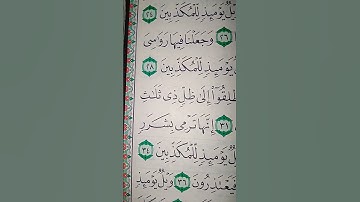 يَوْمَئِذٍ لِّلْمُكَذِّبِينَ ٢٤
٢٦ وَجَعَلْنَا فِيهَا رَوَٰسِىَ
يَوْمَئِذٍ لِّلْمُكَذِّبِينَ ٢٨
ٱنطَلِقُوٓا۟ إِلَىٰ ظِلٍّ ذِى ثَلَٰثِ
٣١ إِنَّهَا تَرْمِى بِشَرَرٍ
يَوْمَئِذٍ لِّلْمُكَذِّبِينَ ٣٤
فَيَعْتَذِرُونَ ٣٦ وَيْلٌ يَوْمَئِذٍ